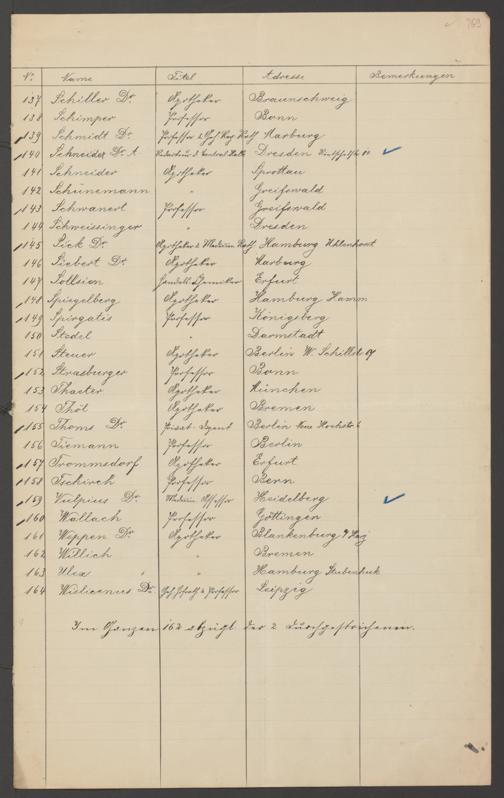 769
No Name Titel Adresse Bemerkungen
137 Schiller Dr. Apotheker Braunschweig
138 Schimper Professor Bonn
139 Schmidt Dr. Professor & Geh. Reg. Rath Marburg
140 Schneider Dr. A Redacteur d. Central Halle Dresden
141 Schneider Apotheker Sprottau
142 Schünemann " Greifswald
143 Schwanert Professor Greifswald
144 Schweissinger " Dresden
145 Sick Dr. Apotheker & Medicin Rath Hamburg Uhlenhorst
146 Siebert Dr. Apotheker Marburg
147 Soltsien Handels Chemiker Erfurt
148 Spiegelberg Apotheker Hamburg Hamm
149 Spirgatis Professor Königsberg
150 Stodel " Darmstadt
151 Steuer Apotheker Berlin W. Schillstr 17
152 Strasburger Professor Bonn
153 Thaeter Apotheker München
154 Thöl Apotheker Bremen
155 Thoms Dr. Privat Berlin
156 Tiemann Professor Berlin
157 Trommsdorf Apotheker Erfurt
158 Tschirch Professor Bern
159 Vulpius Dr. Medicin Assessor Heidelberg
160 Wallach Professor Göttingen
161 Weppen Dr. Apotheker Blankenburg a/Harz
162 Willich " Bremen
163 Ulex " " Hamburg Stubenhuk
164 Wislicenus Dr. Geh. Hofrath & Professor Leipzig
Im Ganzen 162 abzügl der 2 durchgestrichenen.